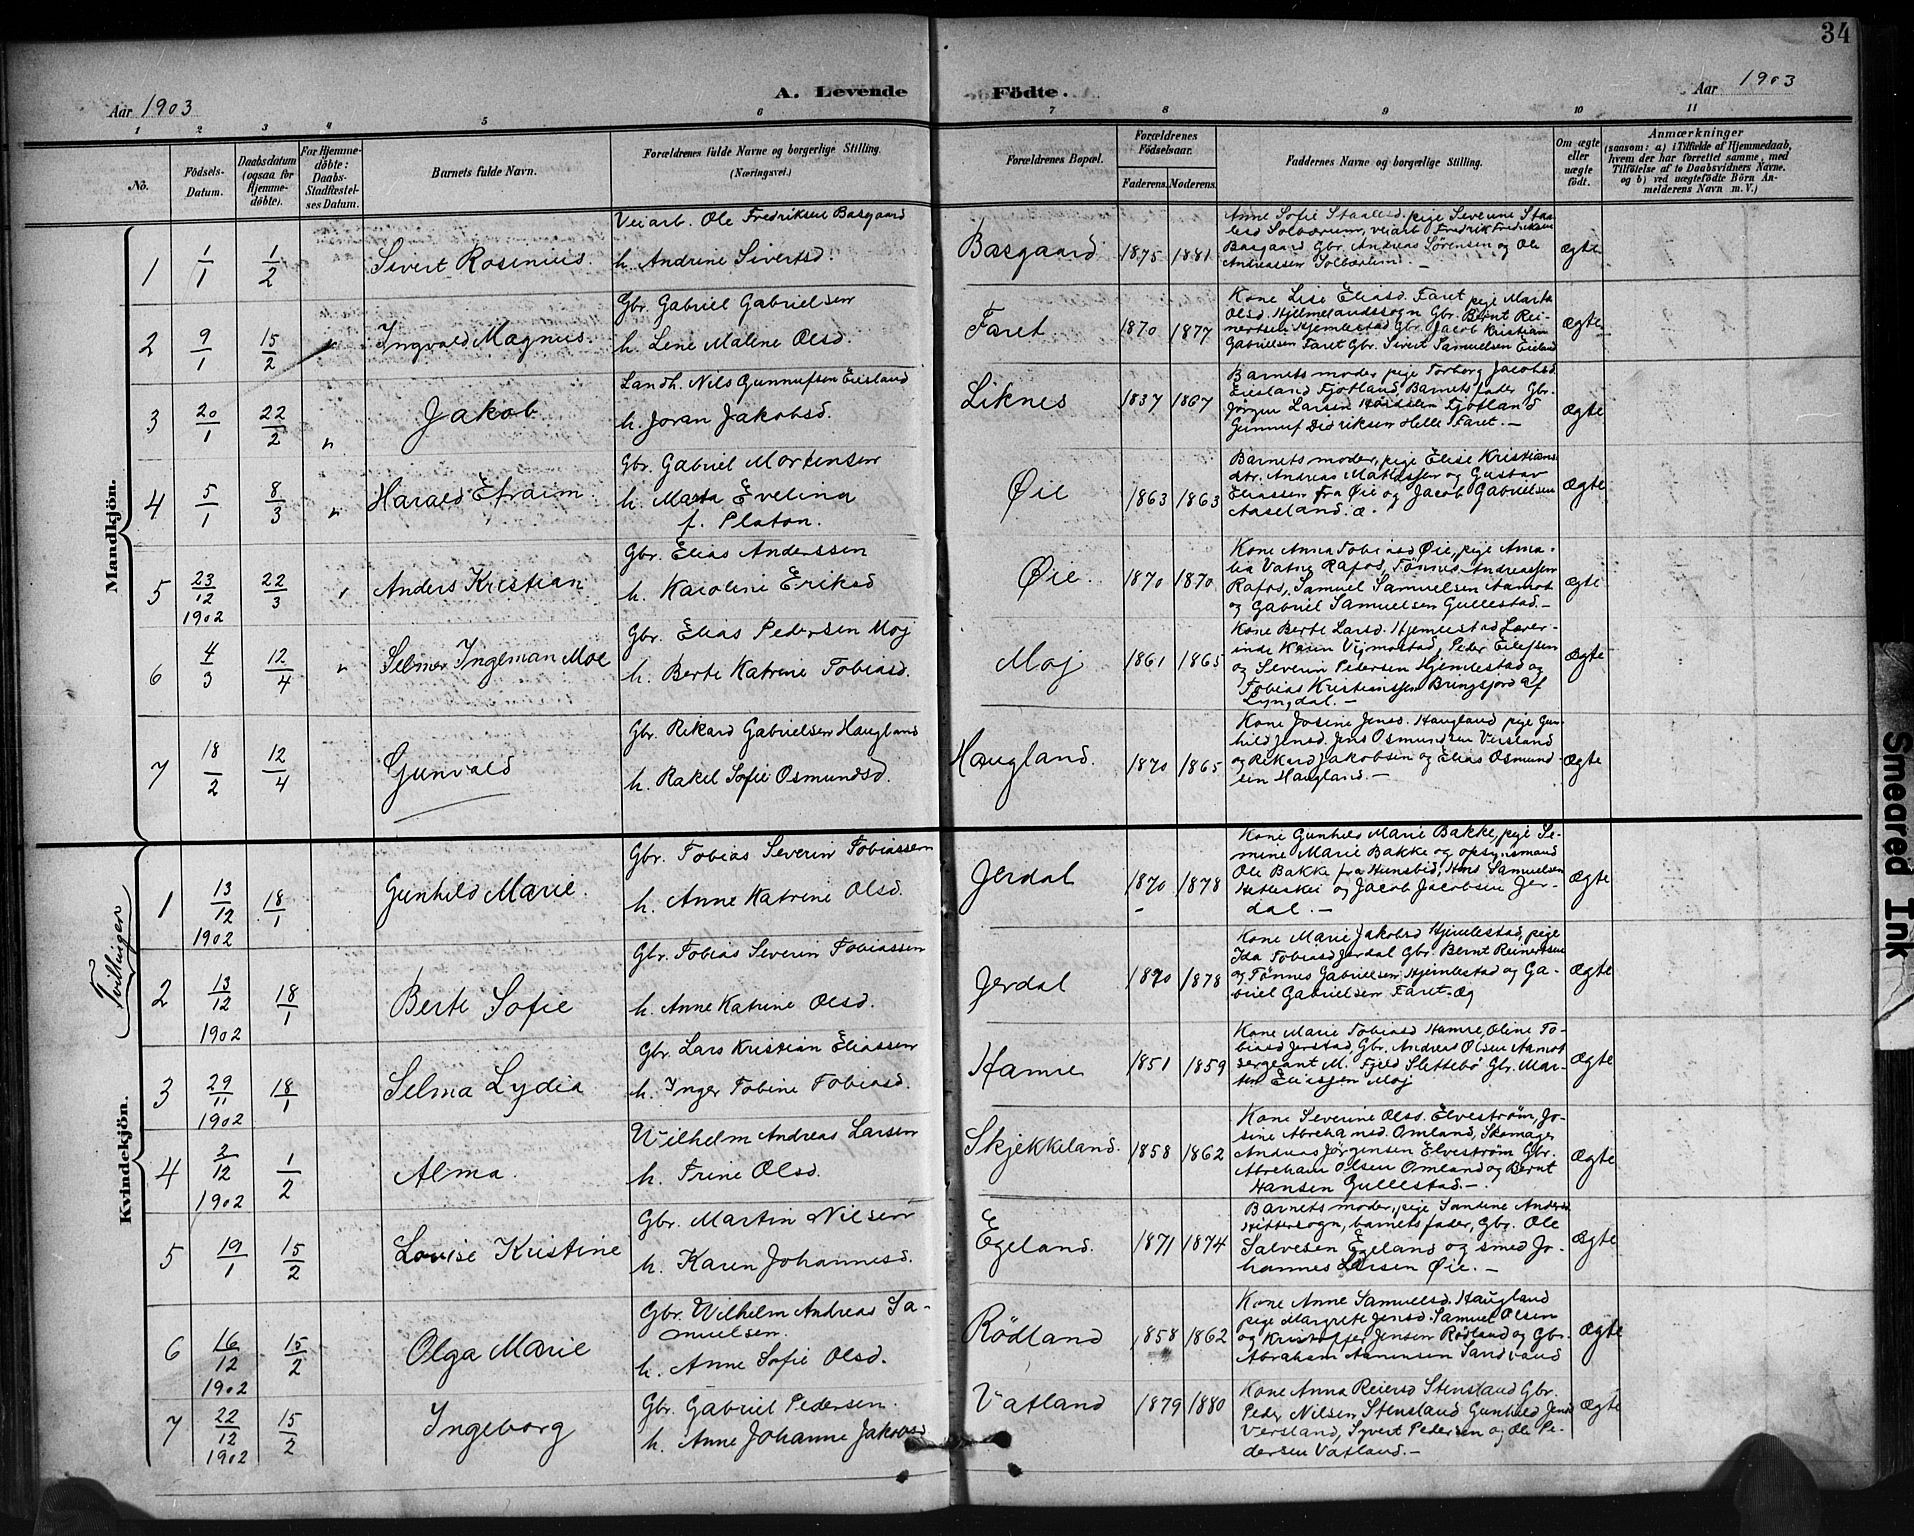 34
Aar 1903
A. Levende Födte.
Aar 1903
1 2 3 4 5 6 7 8 9 10 11
No.
Födsels-Datum.
Daabsdatum (ogsaa for Hjemme-döbte).
For Hjemme-döbte: Daabs-Stadfæstel-ses Datum.
Barnets fulde Navn.
Forældrenes fulde Navne og borgerlige Stilling. (Næringsvei.)
Forældrenes Bopæl.
Forældrenes Födselsaar.
Faderens. Moderens.
Faddernes Navne og borgerlige Stilling.
Om ægte eller uægte födt.
Anmærkninger
(saasom: a) i Tilfælde af Hjemmedaab, hvem der har forrettet samme, med Tilföielse af to Daabsvidners Navne, og b) ved uægtefödte Börn An-melderens Navn m. V.)
Mandkjön.
1 1/1 1/2 Sivert Rosenius.
Veiarb. Ole Fredriksen Basgaard
h. Andrine Sivertsd.
Basgaard 1875 1881
Anne Sofie Staalesd. pige Severine Staa-
lesd Solbærum, veiarb Fredrik Fredriksen
Basgaard Gbr. Andreas Sörensen og Ole
Andreassen Solbærum. —
Ægte
2 9/1 15/2 Ingvald Magnus.
Gbr. Gabriel Gabrielsen
h. Lene Malene Olsd.
Faret 1870 1877
Kone Lise Eliasd. Faret pige Marta
Olsd. Hjelmelandssogn Gbr. Bernt Rei-
nertsen Hjemlestad Gbr. Jacob Kristian
Gabrielsen Faret Gbr. Sivert Samuelsen Eieland
Ægte
3 20/1 22/2 Jakob
Landh. Nils Gunnufsen Eiesland
h. Joran Jakobsd.
Liknes 1837 1867
Barnets moder pige Torborg Jacobsd
Eiesland Fjotland, Barnets fader Gbr.
Jörgen Larsen Fjotland
Gunnuf Didriksen Helle Faret. —
Ægte
4 5/1 8/3 Harald Efraim
Gbr. Gabriel Mortensen
h. Marta Evelina
f. Platon.
Øie 1863 1863
Barnets moder, pige Elise Kristians
dtr. Andreas Mathissen og Gustav
Eliassen fra Øie og Jacob Gabrielsen
Aaseland.
Ægte
5 23/12 1902 22/3 Anders Kristian
Gbr. Elias Anderssen
h. Karoline Eriksd
Øie. 1870 1870
Kone Anna Tobiasd Øie, pige Ama-
lia Vatne Rafos, Tönnes Andreassen
Rafos, Samuel Samuelsen Aamot
og Gabriel Samuelsen Gullestad. —
Ægte
6 4/3 12/4 Selmer Ingeman Moe
Gbr. Elias Pedersen Moj
h. Berte Katrine Tobiasd.
Moj 1861 1865
Kone Berte Larsd. Hjemlestad Lærer-
inde Karin Vigmostad, Peder Eilefsen
og Severin Pedersen Hjemlestad og
Tobias Kristianssen Bringsjord af
Lyngdal. —
Ægte
7 18/2 12/4 Gunvald
Gbr. Rikard Gabrielsen Haugland
h. Rakel Sofie Osmundsd.
Haugland. 1870 1865
Kone Josine Jensd. Haugland pige Gun-
hild Jensd. Jens Osmundsen Versland
og Rikard Jakobsen og Elias Osmund-
sen Haugland. —
Ægte
Tvillinger
Kvindekjön.
1 13/12 1902 18/1 Gunhild Marie.
Gbr. Tobias Severin Tobiassen
h. Anne Katrine Olsd.
Jerdal 1870 1878
Kone Gunhild Marie Bakke, pige Se-
mine Marie Bakke og opsynsmand
Ole Bakke fra Hunsbid, Hans Samuelsen
og Jacob Jacobsen Jer-
dal. —
Ægte
2 13/12 1902 18/1 Berte Sofie
Gbr. Tobias Severin Tobiassen
h. Anne Katrine Olsd.
Jerdal 1870 1878
Kone Marie Jakobsd Hjemlestad, pige
Ida Tobiasd Jerdal Gbr. Bernt Reinertsen
og Tönnes Gabrielsen Hjemlestad og Ga-
briel Gabrielsen Faret.
Ægte
3 29/11 1902 18/1 Selma Lydia
Gbr. Lars Kristian Eliassen
h. Inger Tobine Tobiasd.
Hamre 1851 1859
Kone Marie Tobiasd Hamre, Oline To-
biasd Jerstad, Gbr. Andreas Olsen Aamot
sergeant M. Fjeld Slettebö Gbr. Mar-
ten Moj
Ægte
4 2/12 1902 1/2 Alma.
Wilhelm Andreas Larsen
h. Trine Olsd.
Skjekkeland 1858 1862
Kone Severine Olsd. Elveström, Jo-
sine Abrahamsd. Omland, Skomager
Andreas Jörgensen Elveström Gbr.
Abraham Olsen Omland og Bernt
Hansen Gullestad. —
Ægte
5 19/1 15/2 Lovise Kristine
Gbr. Martin Nilsen
h. Karen Johannesd.
Egeland. 1871 1874
Barnets moder, pige Sandine Andersd
Hitteresogn, barnets fader, Gbr. Ole
Salvesen Egeland og smed Jo-
hannes Larsen Øie. —
Ægte
6 16/12 1902 15/2 Olga Marie
Gbr. Wilhelm Andreas Sa-
muelsen.
h. Anne Sofie Olsd.
Rödland 1858 1862
Kone Anne Samuelsd. Haugland
pige Margrete Jensd. Samuel Olsen
og Kristoffer Jensen Rödland og Gbr.
Abraham Aanensen Sandvand
Ægte
7 22/12 1902 15/2 Ingeborg
Gbr. Gabriel Pedersen.
h. Anne Johanne Jakobsd
Vatland 1879 1880
Kone Anna Reiersd Stensland Gbr.
Peder Nilsen Stensland Gunhild Jensd
Versland, Syvert Pedersen og Ole Pe-
dersen Vatland. —
Ægte
Smeared Ink